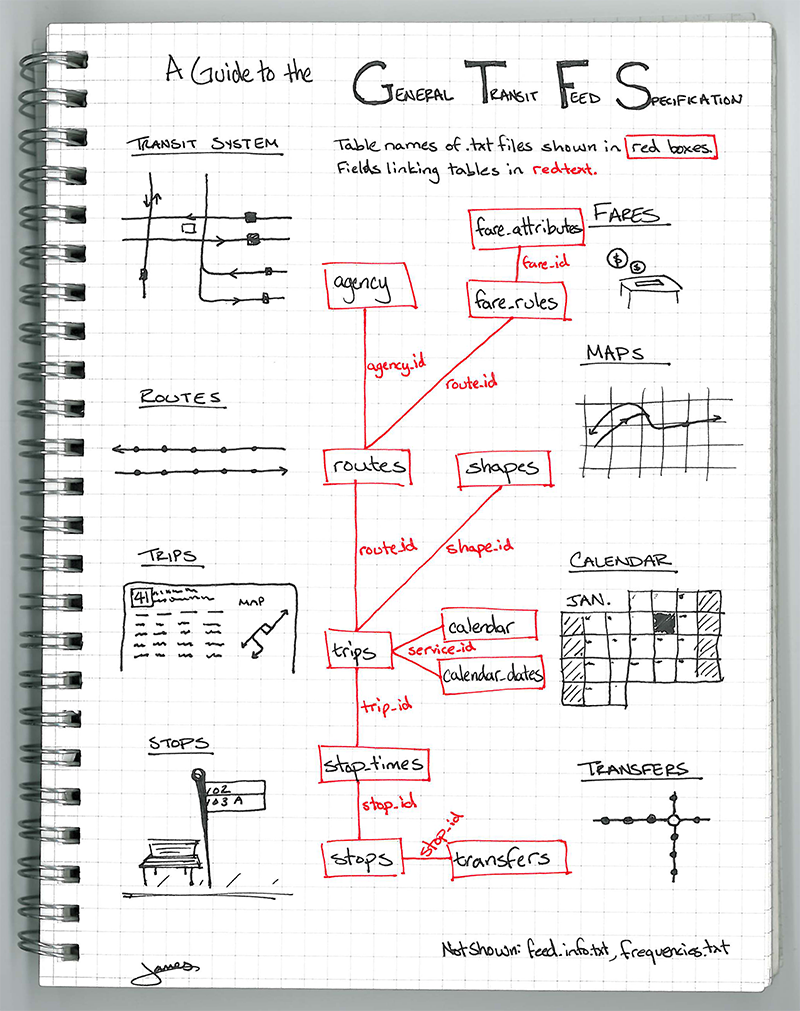 A Guide to the GENERAL TRANSIT FEED SPECIFICATION
TRANSIT SYSTEM
Table names of .txt files shown in red boxes.
Fields linking tables in red text.
fare_attributes
FARES
fare_id
$
$
agency
fare_rules
MAPS
agency_id
route_id
ROUTES
routes
shapes
route_id
shape_id
TRIPS
CALENDAR
41
MAP
JAN.
calendar
trips
service_id
calendar_dates
trip_id
STOPS
stop_times
TRANSFERS
102
103 A
stop_id
stop_id
stops
transfers
Not Shown: feed_info.txt, frequencies.txt
James